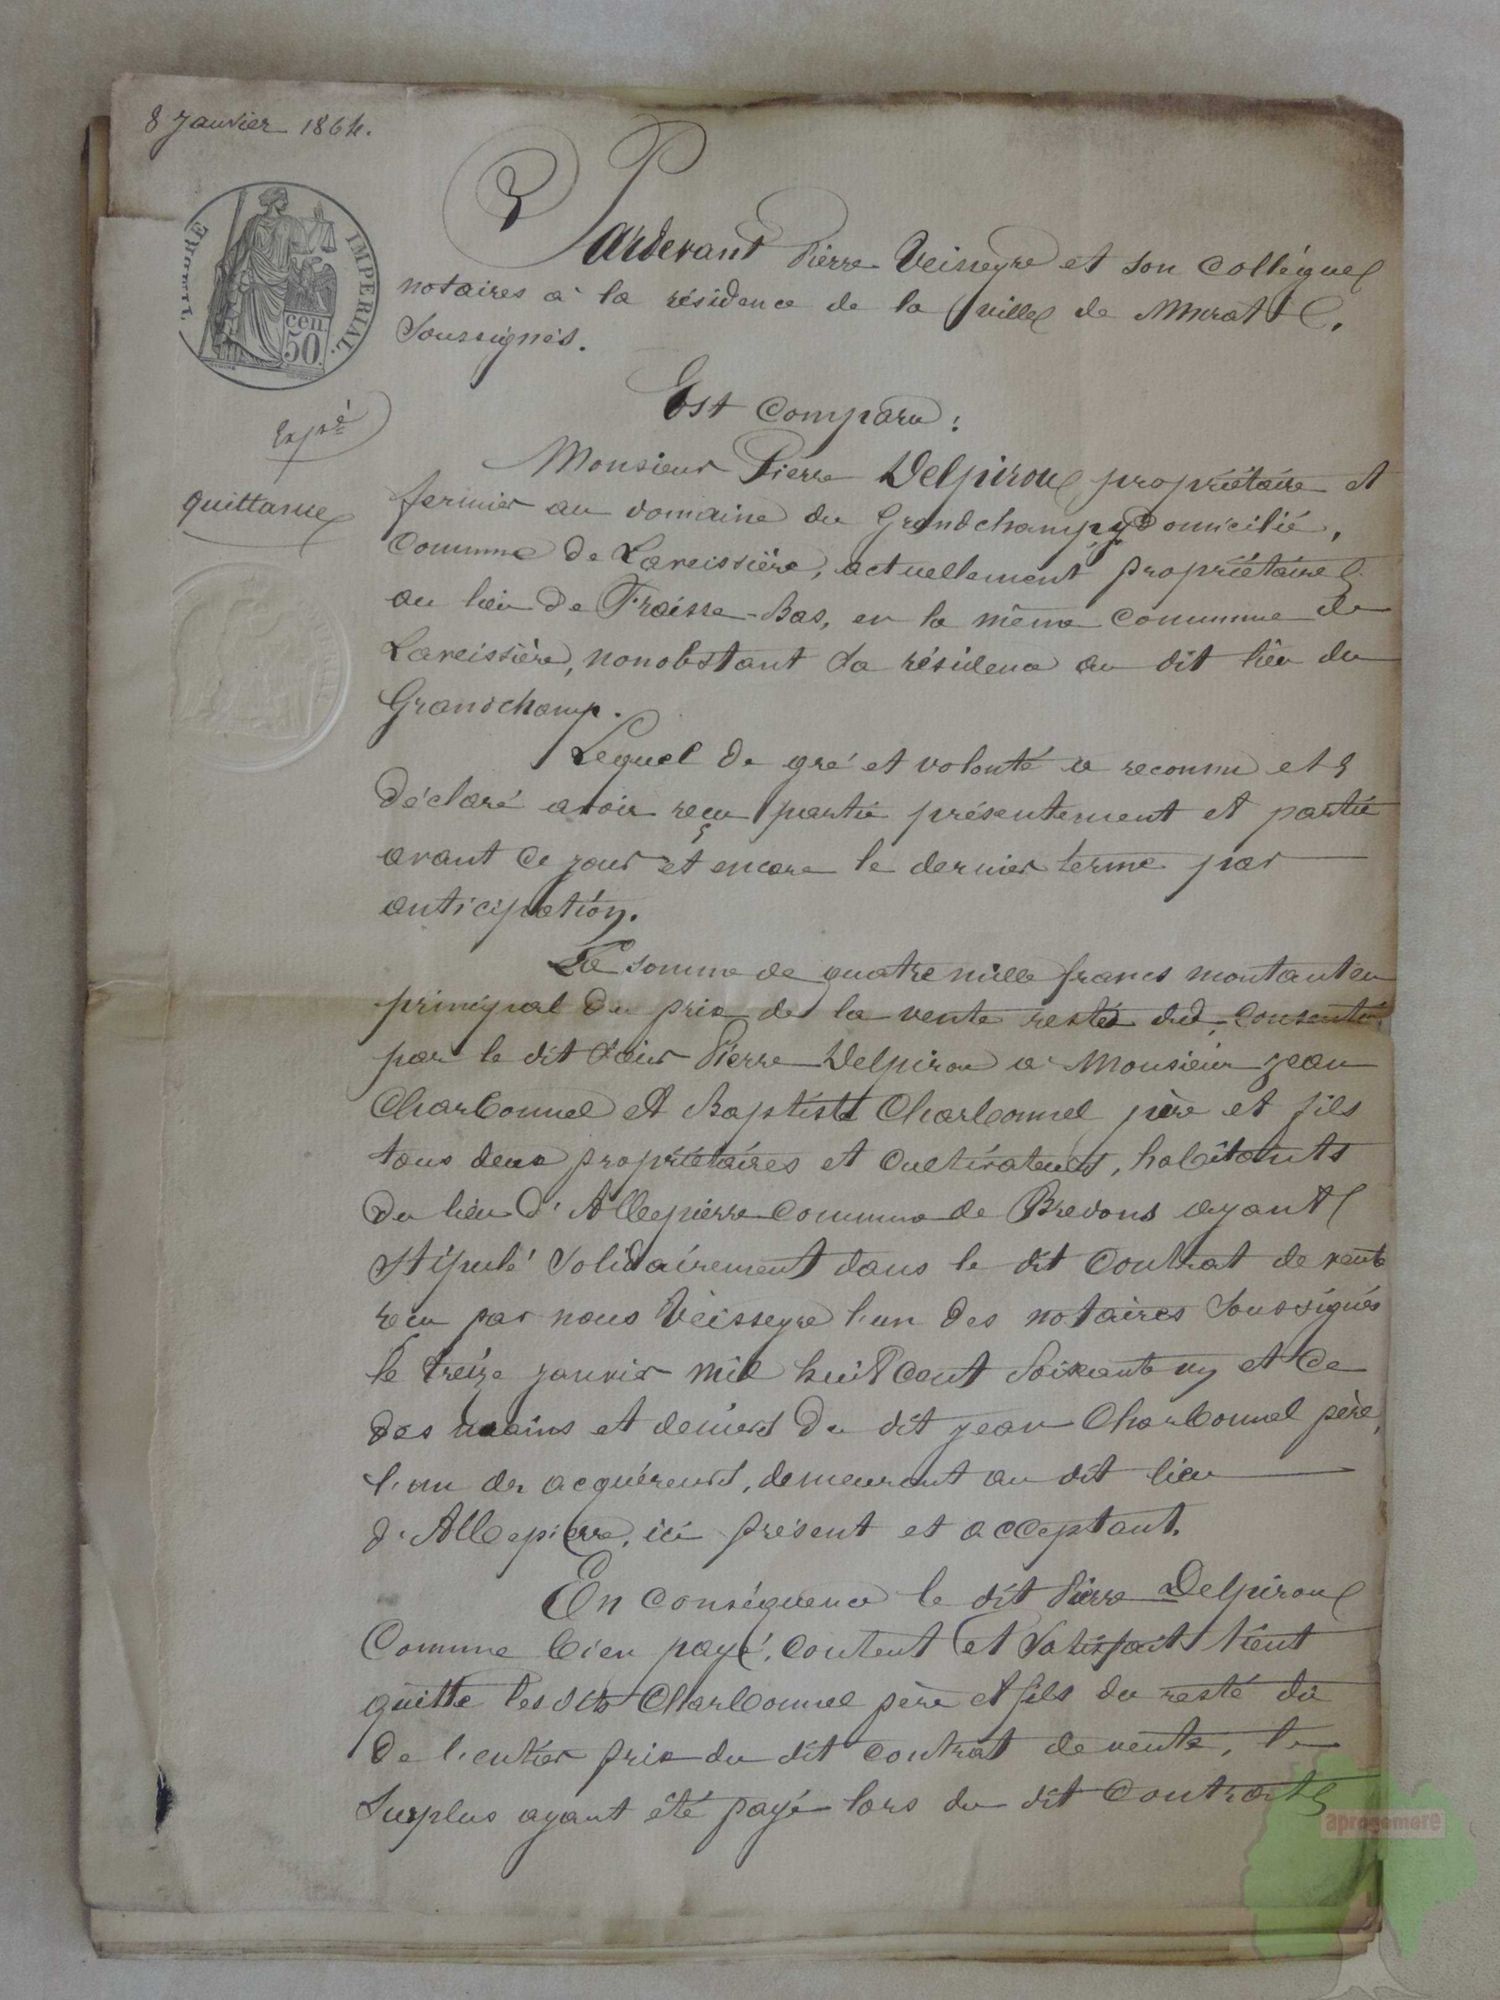 8 Janvier 1864.
TIMBRE IMPERIAL.
50 cen
Pardevant Pierre Veisseyre et son collègue
notaires à la résidence de la ville de Murat
Soussignés.
Expé
Est comparu :
Monsieur Pierre Delpirou, propriétaire et
quittance
fermier au domaine du Grandchamp y Domicilié,
Commune de Laveissière, actuellement propriétaire
au lieu de Fraisse-Bas, en la même commune de
Laveissière, nonobstant Sa résidence au dit lieu du
Grandchamp.
Lequel de gré et volonté a reconnu et
Déclaré avoir reçu partie présentement et partie
avant ce jour et encore le dernier terme par
anticipation.
La somme de quatre mille francs montant en
principal du prix de la vente restés dûs, consentie
par le dit Sieur Pierre Delpirou à Monsieur Jean
Charbonnel et Baptiste Charbonnel père et fils
tous deux propriétaires et cultivateurs, habitants
du lieu d'Allepierre commune de Bredons ayant
Stipulé Solidairement dans le dit contrat de vente
reçu par nous Veisseyre l'un des notaires Soussignés
le treize janvier mil huit cent Soixante un et ce
des mains et deniers du dit Jean Charbonnel père,
l'un des acquéreurs, demeurant au dit lieu
d'Allepierre, ici présent et acceptant.
En conséquence le dit Pierre Delpirou
Comme bien payé, content et Satisfait tient
quitte les dits Charbonnel père et fils du resté dû
De l'entier prix du dit contrat de vente, le
Surplus ayant été payé lors du dit Contrat
aprogemere